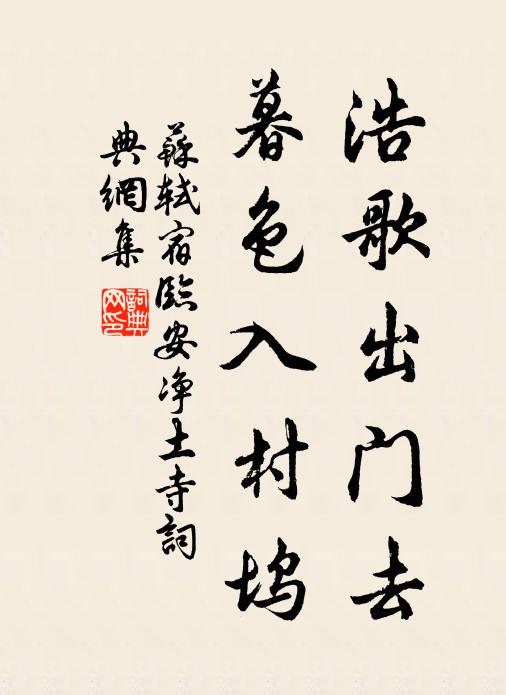 浩歌出门去
暮色入村坞
蘇軾宿臨安净土寺詞
典網集
詞典网印